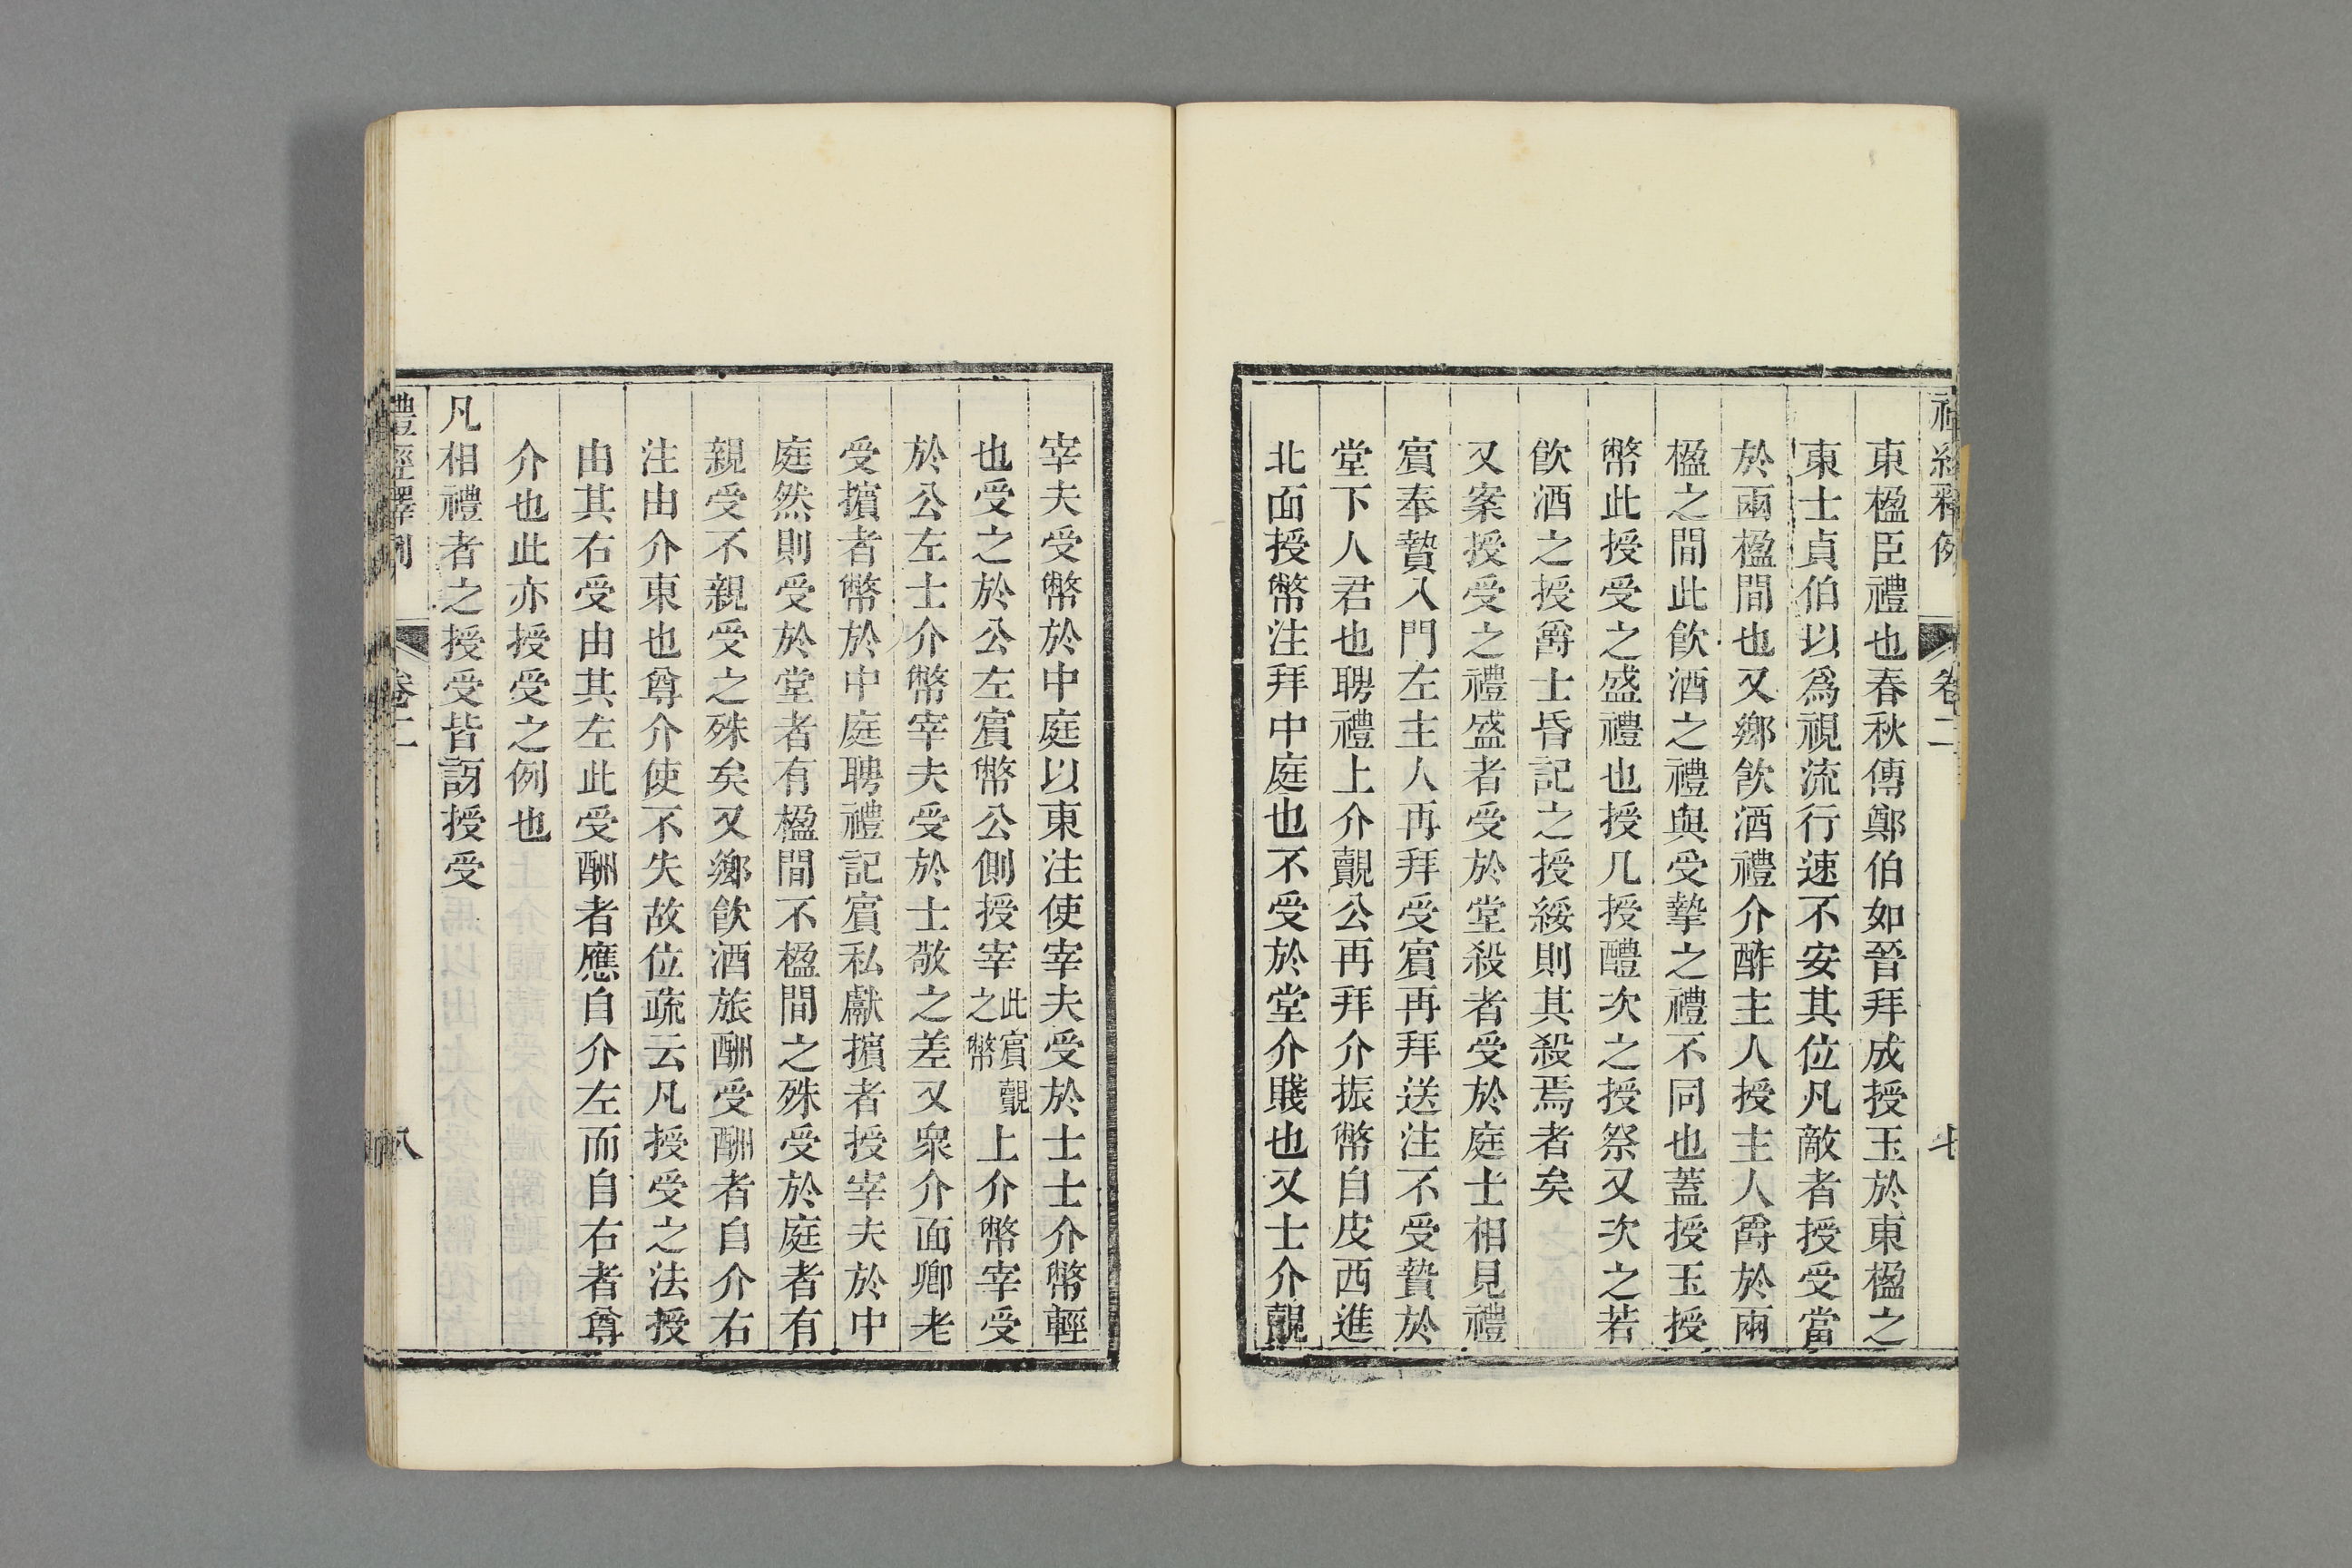 禮經釋例 卷二 七
東楹臣禮也春秋傳鄭伯如晉拜成授玉於東楹之
東士貞伯以爲視流行速不安其位凡敵者授受當
於兩楹間也又鄉飮酒禮介酢主人授主人爵於兩
楹之間此飮酒之禮與受摯之禮不同也蓋授玉授
幣此授受之盛禮也授几授醴次之授祭又次之若
飮酒之授爵士昏記之授綏則其殺焉者矣
又案授受之禮盛者受於堂殺者受於庭士相見禮
賓奉贄入門左主人再拜受賓再拜送注不受贄於
堂下人君也聘禮上介覿公再拜介振幣自皮西進
北面授幣注拜中庭也不受於堂介賤也又士介覿
宰夫受幣於中庭以東注使宰夫受於士士介幣輕
也受之於公左賓幣公側授宰此賓覿之幣上介幣宰受
於公左士介幣宰夫受於士敬之差又衆介面卿老
受擯者幣於中庭聘禮記賓私獻擯者授宰夫於中
庭然則受於堂者有楹間不楹間之殊受於庭者有
親受不親受之殊矣又鄉飮酒旅酬受酬者自介右
注由介東也尊介使不失故位疏云凡授受之法授
由其右受由其左此受酬者應自介左而自右者尊
介也此亦授受之例也
凡相禮者之授受皆訝授受
禮經釋例 卷二 八